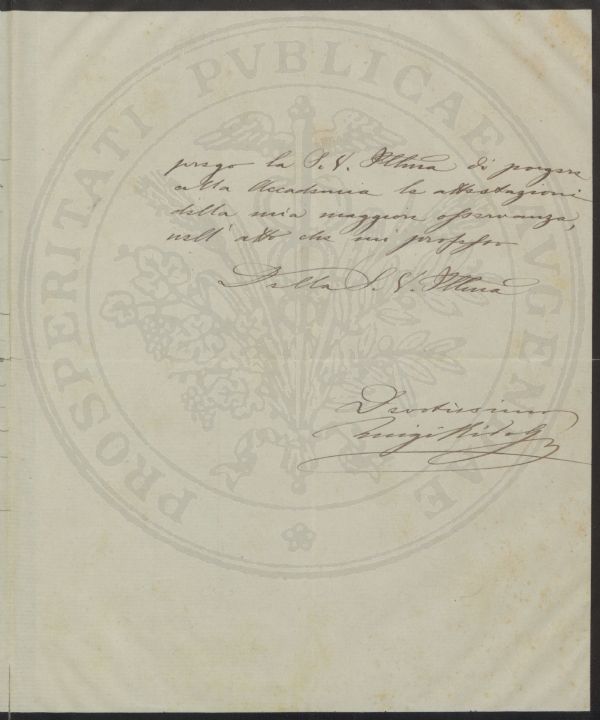 PROSPERITATI PVBLICAE AVGENDAE
prego la S. V. Illma di porgere
alla Accademia le attestazioni
della mia maggiore osservanza,
nell' atto che mi professo
Della S. V. Illma
Devotissimo
Luigi